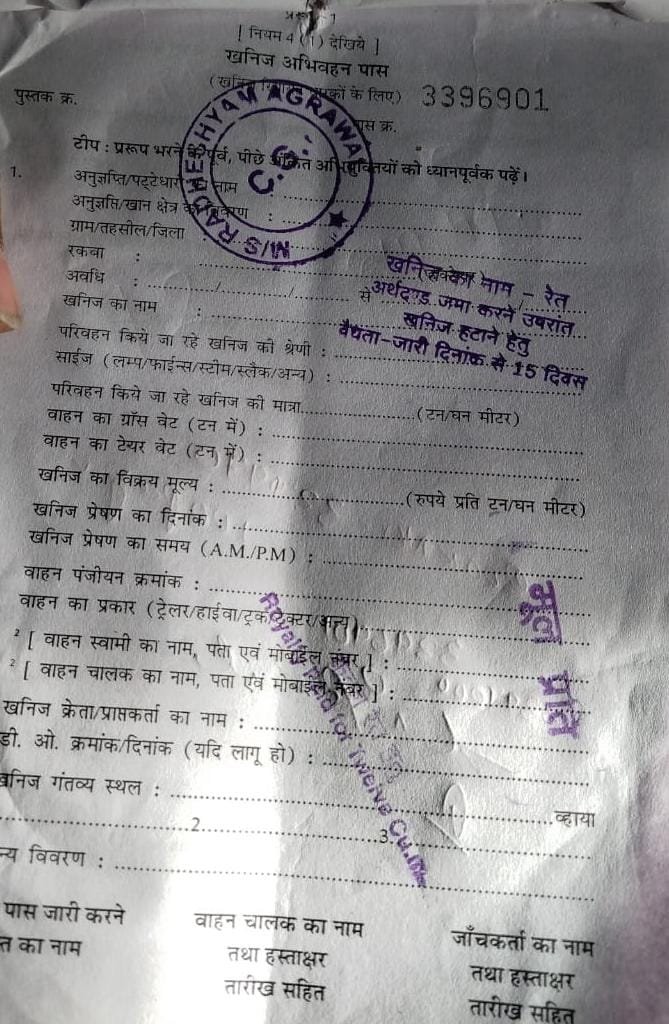 [ नियम 4 (1) देखिये ]
खनिज अभिवहन पास
(खनि के लिए) 3396901
पुस्तक क्र.
पास क्र.
टीप : प्ररूप भरने के पूर्व, पीछे अंकित को ध्यानपूर्वक पढ़ें।
M/S RADHESHYAM AGRAWAL
1. अनुज्ञप्ति/पट्टेधारी का नाम :
अनुज्ञप्ति/खान क्षेत्र का विवरण :
ग्राम/तहसील/जिला
रकवा :
अवधि : ............/............/............ से
खनिज का नाम :
खनिज का नाम - रेत
अर्थदण्ड जमा करने उपरांत
खनिज हटाने हेतु
वैधता-जारी दिनांक से 15 दिवस
परिवहन किये जा रहे खनिज की श्रेणी :
साईज (लम्प/फाईन्स/स्टीम/स्लैक/अन्य) :
परिवहन किये जा रहे खनिज की मात्रा..................(टन/घन मीटर)
वाहन का ग्रॉस वेट (टन में) :
वाहन का टेयर वेट (टन में) :
खनिज का विक्रय मूल्य : ..............................(रुपये प्रति टन/घन मीटर)
खनिज प्रेषण का दिनांक :
खनिज प्रेषण का समय (A.M./P.M) :
वाहन पंजीयन क्रमांक :
वाहन का प्रकार (ट्रेलर/हाईवा/ट्रक/ट्रैक्टर/अन्य)
² [ वाहन स्वामी का नाम, पता एवं मोबाईल नंबर ] :
² [ वाहन चालक का नाम, पता एवं मोबाईल नंबर ] :
मूल प्रति
Royalty Paid for Twelve Cu.m
खनिज क्रेता/प्राप्तकर्ता का नाम :
डी. ओ. क्रमांक/दिनांक (यदि लागू हो) :
खनिज गंतव्य स्थल : ..............................व्हाया
..............................2..............................3..............................
न्य विवरण :
पास जारी करने वाहन चालक का नाम जाँचकर्ता का नाम
त का नाम तथा हस्ताक्षर तथा हस्ताक्षर
तारीख सहित तारीख सहित